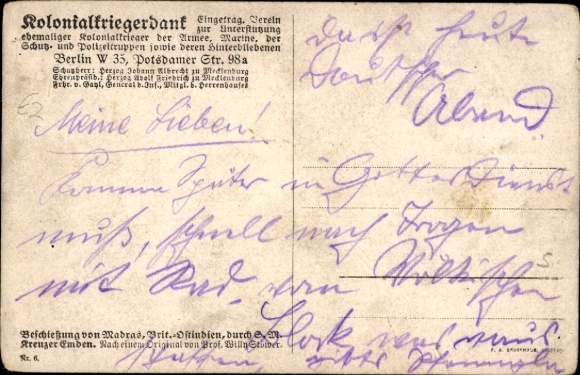 Kolonialkriegerdank Eingetrag. Verein
zur Unterstützung
ehemaliger Kolonialkrieger der Armee, Marine, der
Schutz- und Polizeitruppen sowie deren Hinterbliebenen
Berlin W 35, Potsdamer Str. 98a
Schutzherr: Herzog Johann Albrecht zu Mecklenburg
Ehrenpräsid.: Herzog Adolf Friedrich zu Mecklenburg
Frhr. v. Gayl, General d. Inf., Mitgl. d. Herrenhauses
62
Meine Lieben!
Komme Später in Gottesdienst
muß, schnell nach Trogen
mit Rad, von Völkischen
Block
da ist heute
Deutscher
Abend
5
Beschießung von Madras, Brit.-Ostindien, durch S. M.
Kreuzer Emden. Nach einem Original von Prof. Willy Stöwer.
Nr. 6.